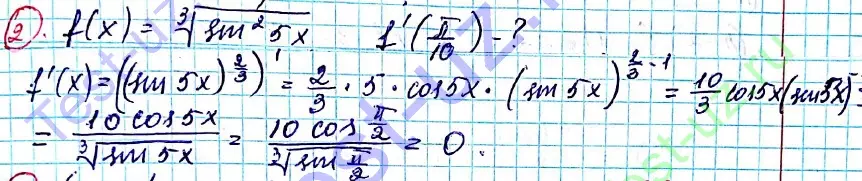 2. f(x) = ∛(sin² 5x)   f'(π/10) - ?
f'(x) = ((sin 5x)^(2/3))' = 2/3 · 5 · cos 5x · (sin 5x)^(2/3 - 1) = 10/3 cos 5x (sin 5x)
= 10 cos 5x / ∛(sin 5x) = 10 cos π/2 / ∛(sin π/2) = 0.